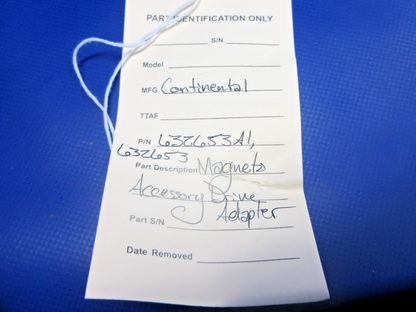 PART IDENTIFICATION ONLY
S/N
Model
MFG Continental
TTAF
P/N 632653A1,
632653
Part Description Magneto
Accessory Drive
Adapter
Part S/N
Date Removed